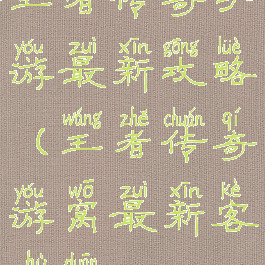 yóu zuì xīn gōng lüè
游最新攻略
wáng zhě chuán qí
（王者传奇
yóu wō zuì xīn kè
游窝最新客